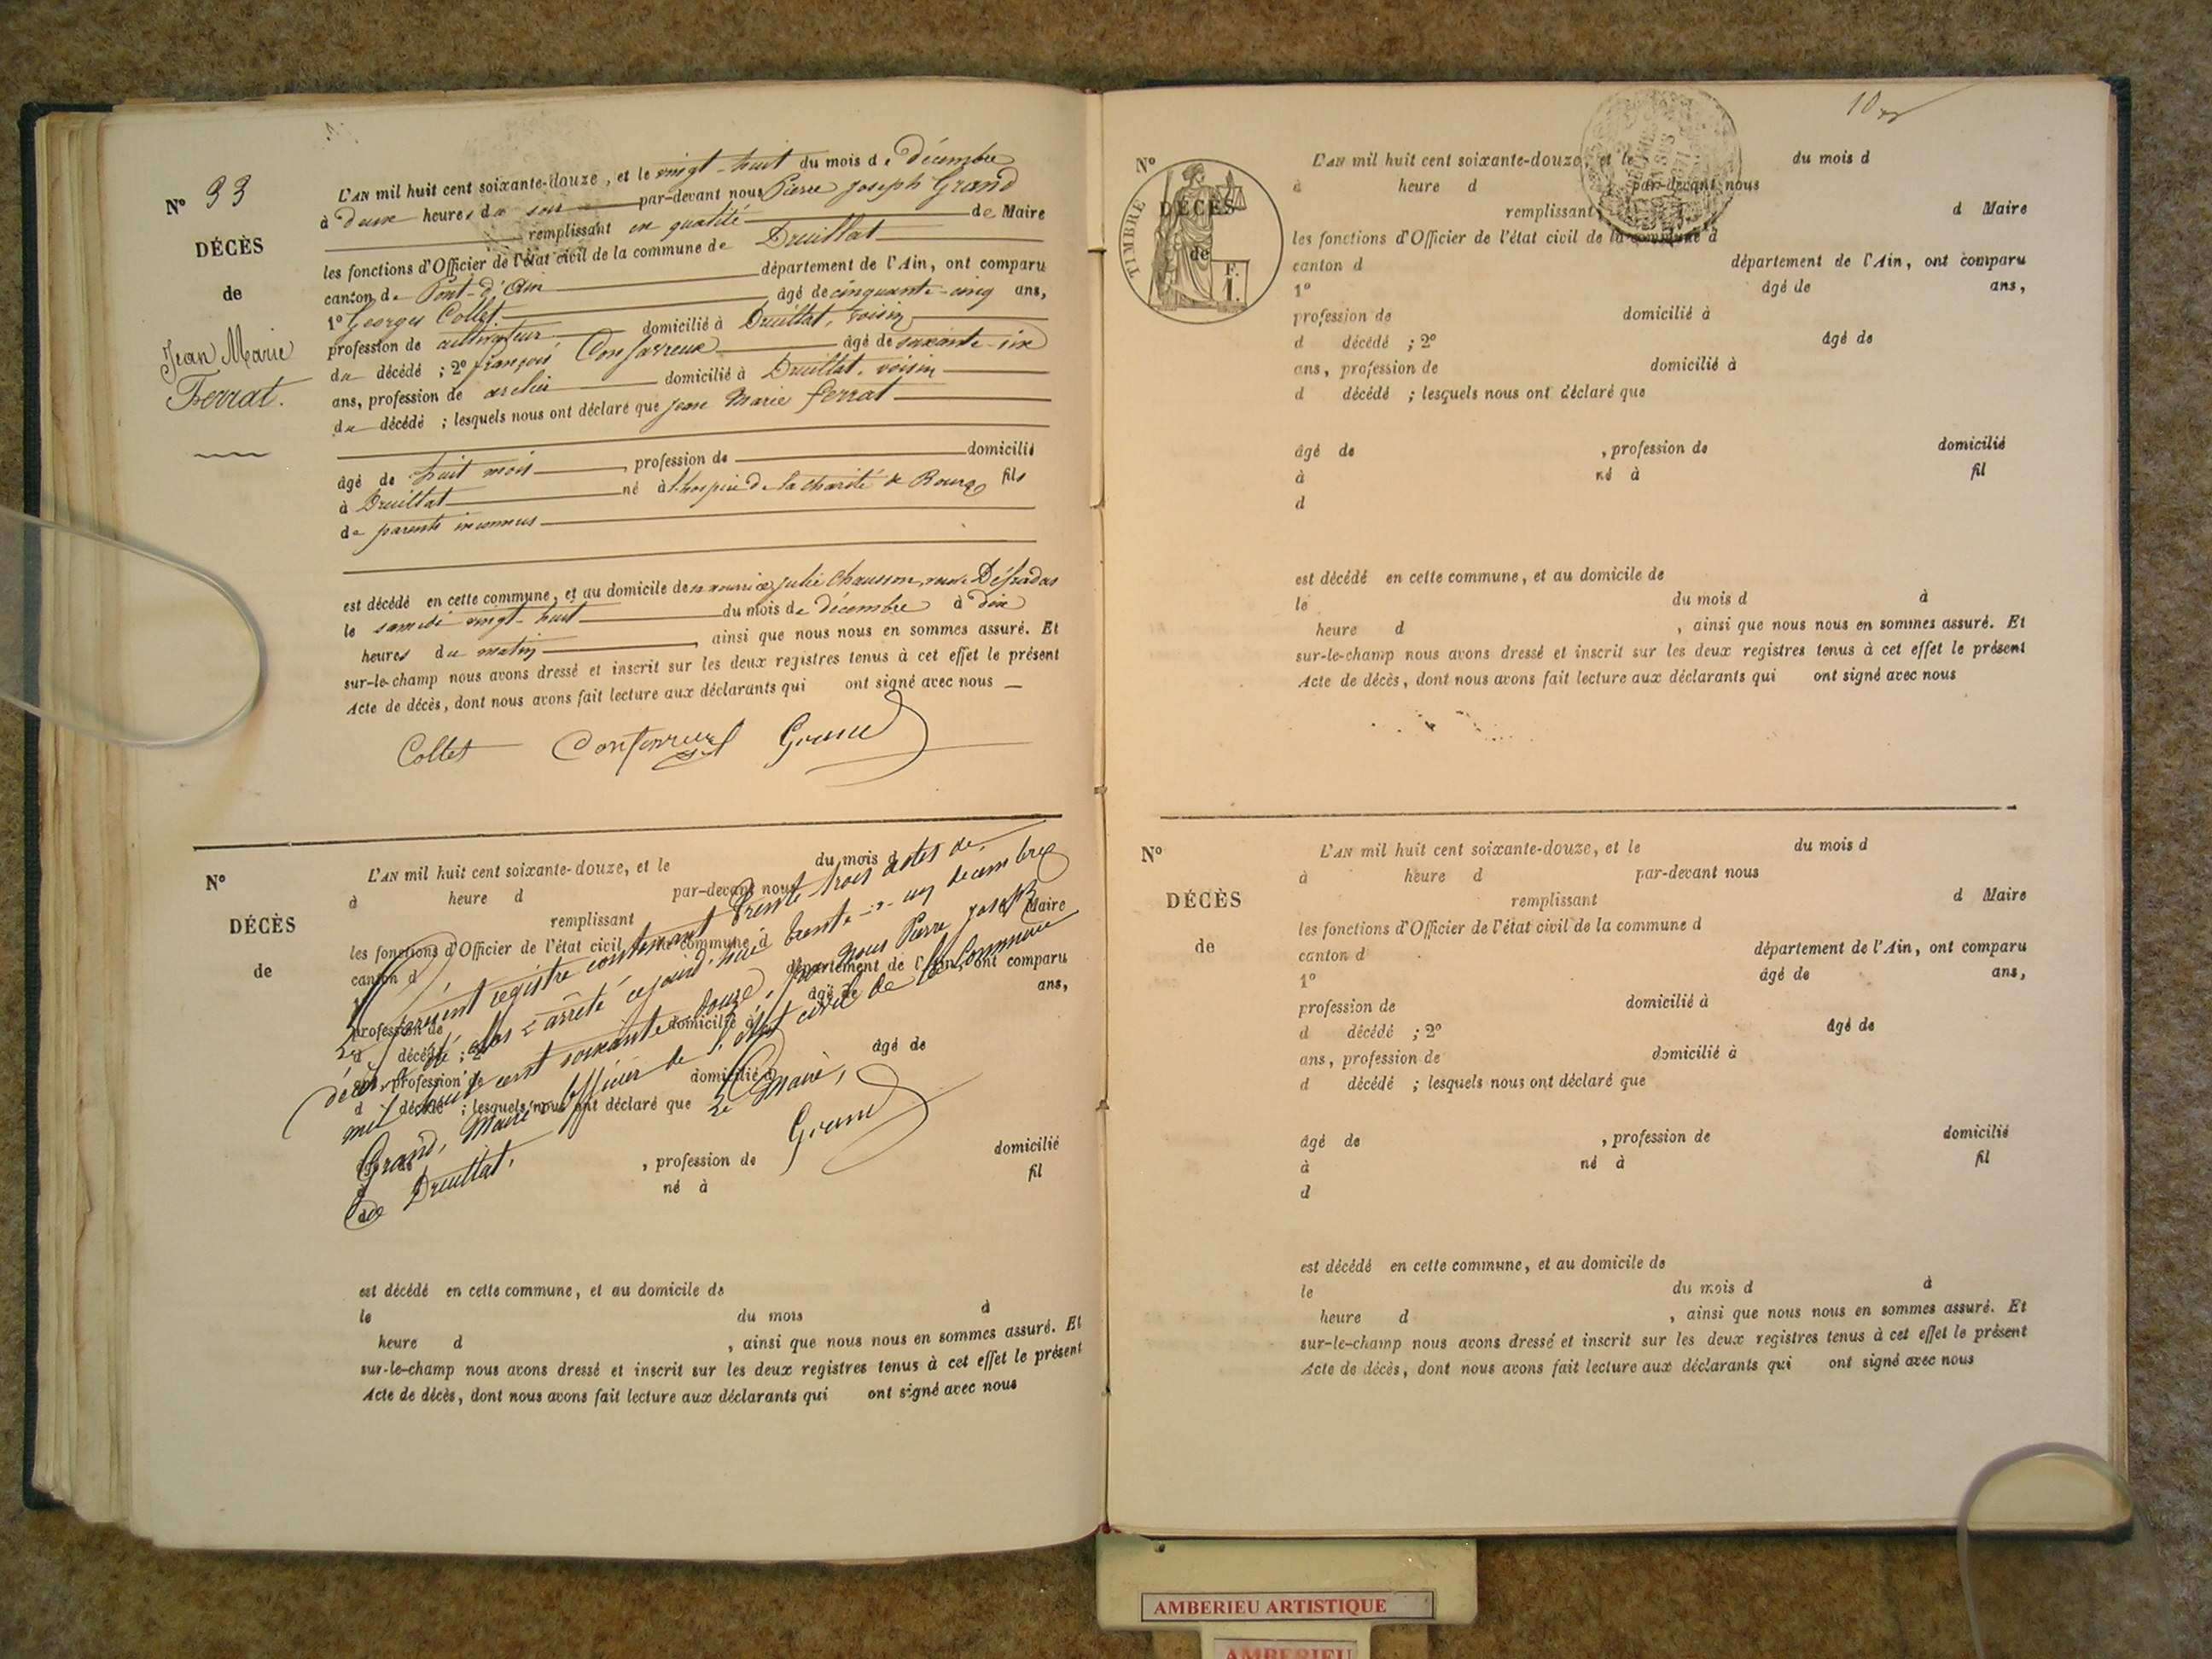 N° 33
DÉCÈS
de
Jean Marie
Ferrat.
L'AN mil huit cent soixante-douze, et le vingt-huit du mois de Décembre
à deux heures du soir par-devant nous Pierre Joseph Grand
remplissant en qualité de Maire
les fonctions d'Officier de l'état civil de la commune de Druillat
canton de Pont-d'Ain département de l'Ain, ont comparu
1° Georges Collet âgé de cinquante-cinq ans,
profession de cultivateur domicilié à Druillat, voisin
du décédé ; 2° françois âgé de soixante-six
ans, profession de domicilié à Druillat, voisin
du décédé ; lesquels nous ont déclaré que Jean Marie ferrat
âgé de huit mois , profession de domicilié
à Druillat né à l'hospice de la charité de Bourg fils
de parents inconnus
est décédé en cette commune, et au domicile de sa nourrice Julie Chausson,
le samedi vingt-huit du mois de décembre à dix
heures du matin , ainsi que nous nous en sommes assuré. Et
sur-le-champ nous avons dressé et inscrit sur les deux registres tenus à cet effet le présent
Acte de décès, dont nous avons fait lecture aux déclarants qui ont signé avec nous
Collet Grand
N°
DÉCÈS
de
L'AN mil huit cent soixante-douze, et le du mois d
à heure d par-devant nous
remplissant Maire
les fonctions d'Officier de l'état civil commune d
canton d département de l'Ain, ont comparu
âgé de ans,
profession de domicilié à
d décédé ; 2° âgé de
ans, profession de domicilié à
d décédé ; lesquels nous ont déclaré que
, profession de domicilié
né à fil
Le présent registre contenant trente trois actes de
décès a été clos & arrêté cejourd'hui trente-un décembre
mil huit cent soixante-douze, par nous Pierre Joseph
Grand, Maire officier de l'état civil de la Commune
de Druillat.
Le Maire,
Grand
est décédé en cette commune, et au domicile de
le du mois à
heure d , ainsi que nous nous en sommes assuré. Et
sur-le-champ nous avons dressé et inscrit sur les deux registres tenus à cet effet le présent
Acte de décès, dont nous avons fait lecture aux déclarants qui ont signé avec nous
N°
TIMBRE
DÉCÈS
de
F.
1.
L'AN mil huit cent soixante-douze, et le du mois d
à heure d par-devant nous
remplissant d Maire
les fonctions d'Officier de l'état civil de la commune d
canton d département de l'Ain, ont comparu
1° âgé de ans,
profession de domicilié à
d décédé ; 2° âgé de
ans, profession de domicilié à
d décédé ; lesquels nous ont déclaré que
âgé de , profession de domicilié
à né à fil
d
est décédé en cette commune, et au domicile de
le du mois d à
heure d , ainsi que nous nous en sommes assuré. Et
sur-le-champ nous avons dressé et inscrit sur les deux registres tenus à cet effet le présent
Acte de décès, dont nous avons fait lecture aux déclarants qui ont signé avec nous
N°
DÉCÈS
de
L'AN mil huit cent soixante-douze, et le du mois d
à heure d par-devant nous
remplissant d Maire
les fonctions d'Officier de l'état civil de la commune d
canton d département de l'Ain, ont comparu
1° âgé de ans,
profession de domicilié à
d décédé ; 2° âgé de
ans, profession de domicilié à
d décédé ; lesquels nous ont déclaré que
âgé de , profession de domicilié
à né à fil
d
est décédé en cette commune, et au domicile de
le du mois d à
heure d , ainsi que nous nous en sommes assuré. Et
sur-le-champ nous avons dressé et inscrit sur les deux registres tenus à cet effet le présent
Acte de décès, dont nous avons fait lecture aux déclarants qui ont signé avec nous
AMBERIEU ARTISTIQUE
AMBERIEU